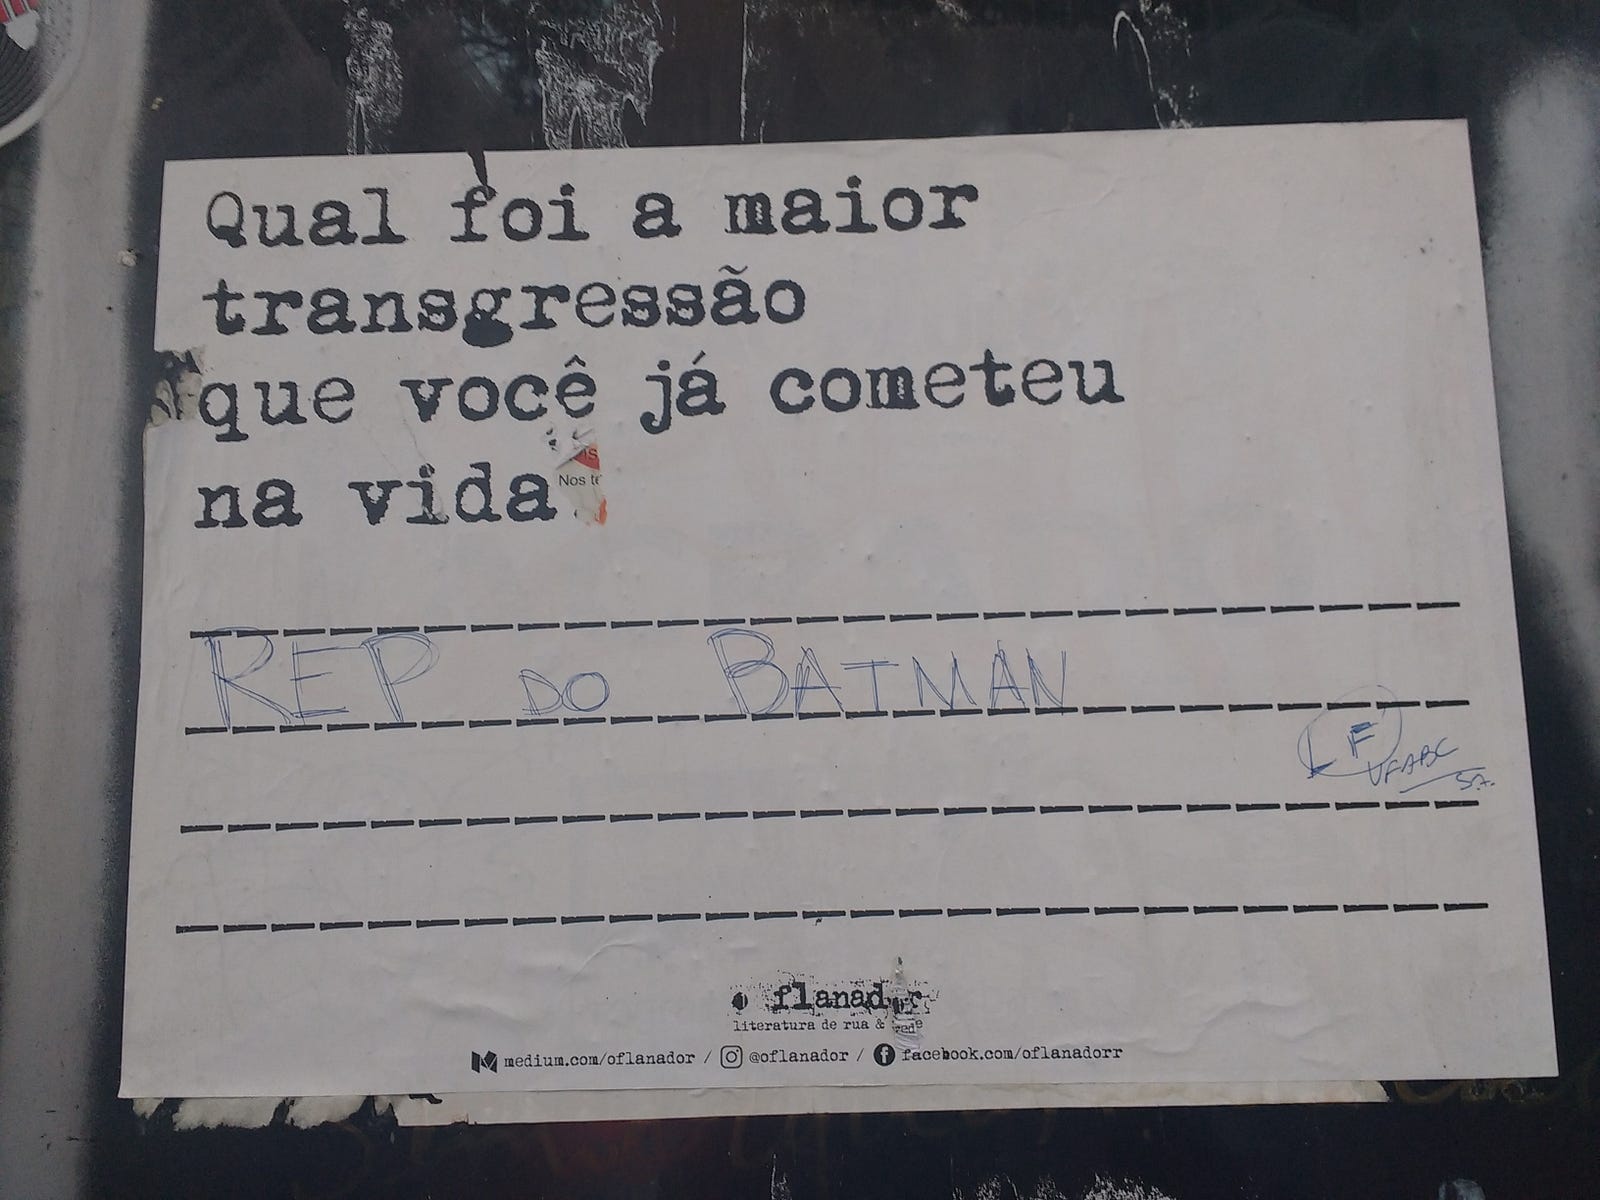 Qual foi a maior
transgressão
que você já cometeu
na vida
Nos te
REP DO BATMAN
LF
UFABC
SA.
o flanador
literatura de rua & rede
medium.com/oflanador / @oflanador / facebook.com/oflanadorr